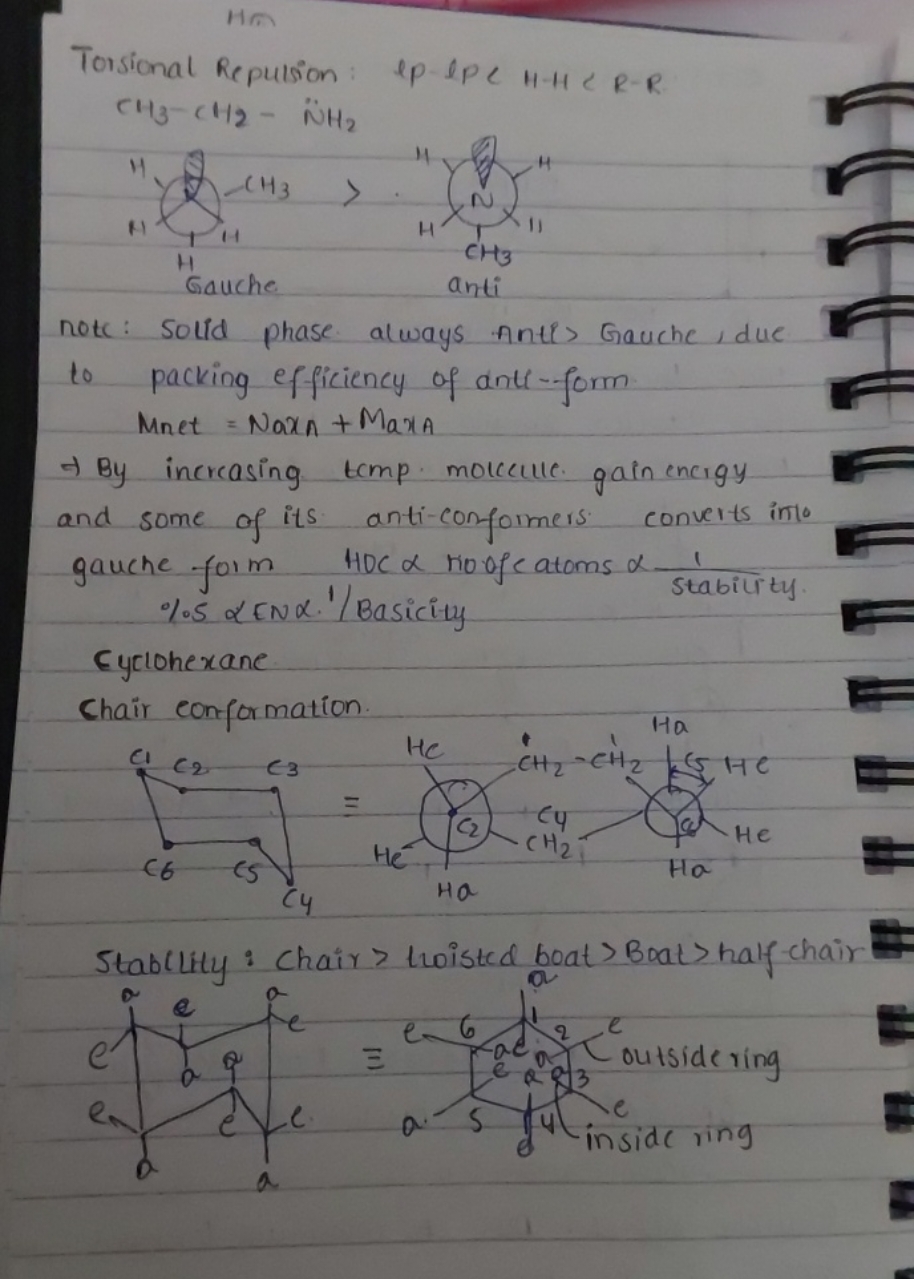 Torsional Repulsion: lp-lp < H-H < R-R
CH3-CH2-N̈H2
H CH3 > H H
H H N H H
H CH3
Gauche anti
note: Solid phase always Anti > Gauche, due
to packing efficiency of anti-form
Mnet = NaxA + MaxA
⇒ By increasing temp. molecule gain energy
and some of its anti-conformers converts into
gauche form HOC α no of c atoms α 1/stability.
%S α EN α 1/Basicity
Cyclohexane
Chair conformation.
C1 C2 C3 He CH2-CH2 Ha C5 He
≡ C2 C4
C6 C5 He CH2 He
C4 Ha Ha
Stability: Chair > twisted boat > Boat > half-chair
a e a a
e e e 6 1 2 e
a a ≡ outside ring
e e e 3
a 5 4 e
a a inside ring